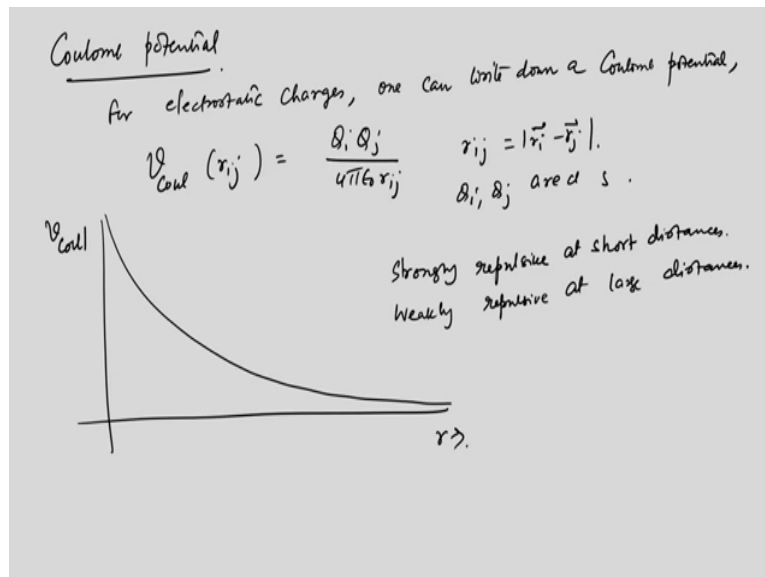 Coulomb potential.
For electrostatic charges, one can write down a Coulomb potential,
V_Coul (r_ij) = Q_i Q_j / 4πϵ_0 r_ij    r_ij = |r⃗_i - r⃗_j|.
Q_i, Q_j are
V_Coul
Strongly repulsive at short distances.
Weakly repulsive at large distances.
r→.